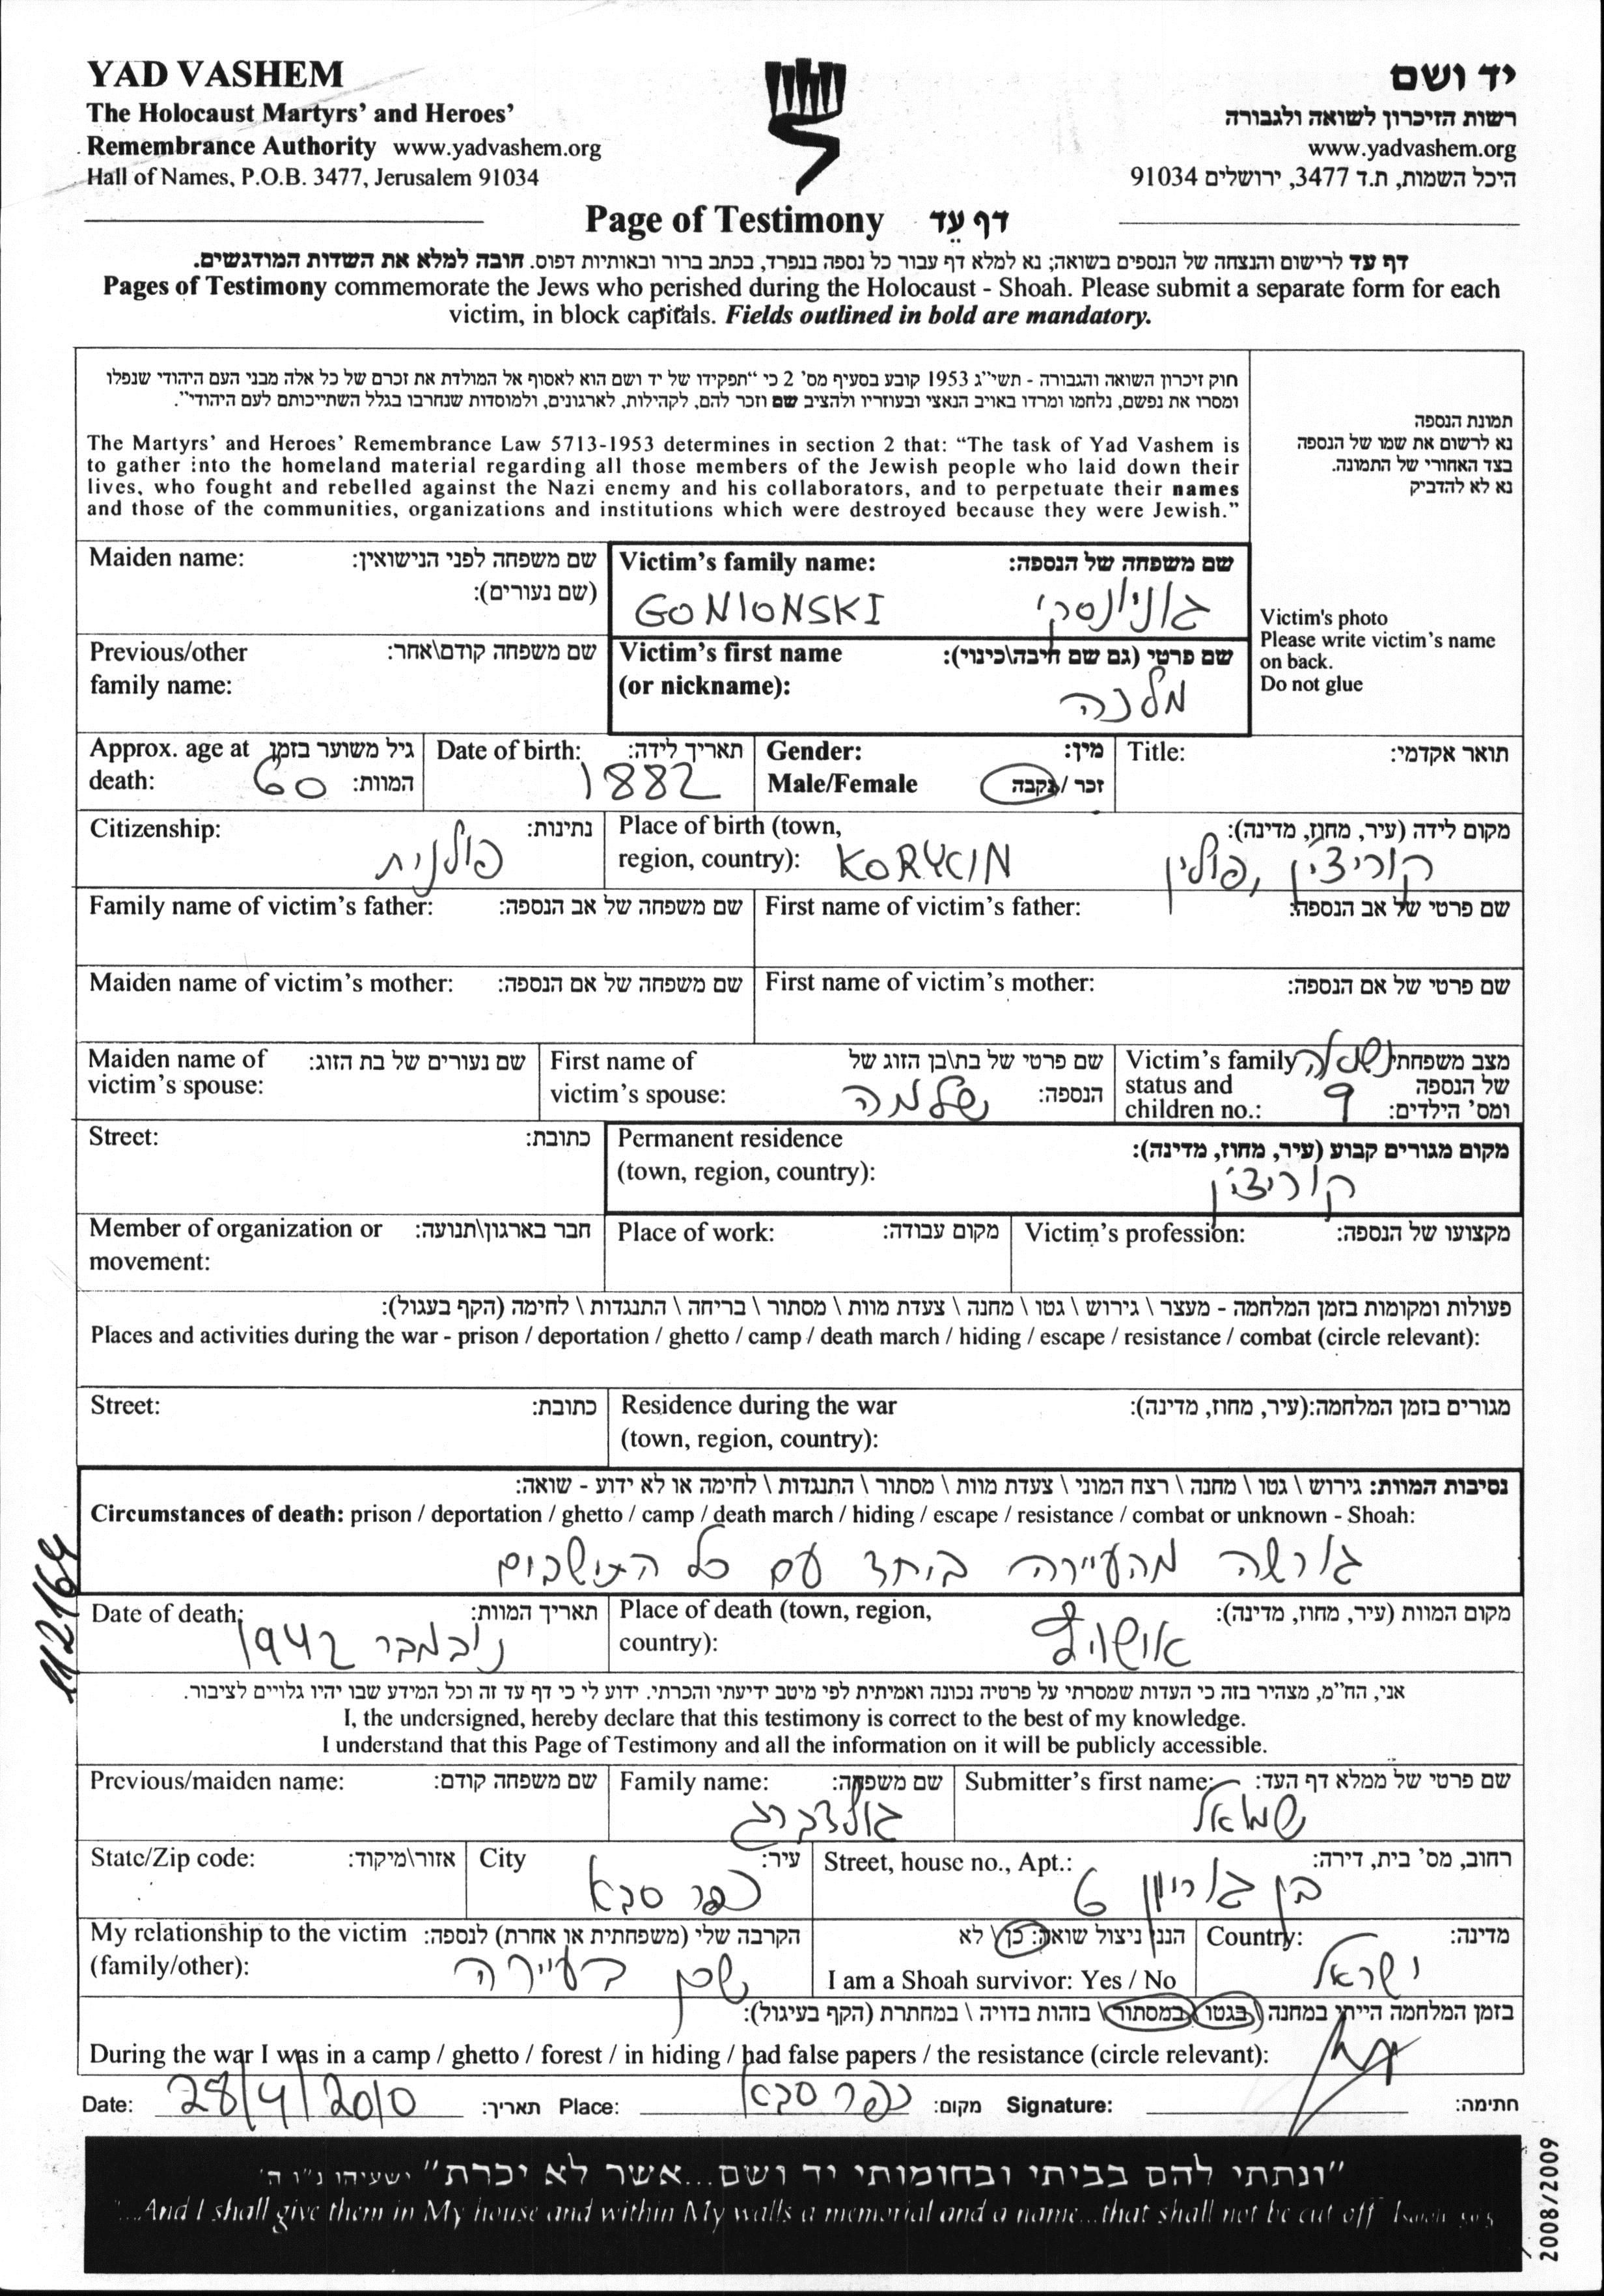 YAD VASHEM
The Holocaust Martyrs' and Heroes'
Remembrance Authority www.yadvashem.org
Hall of Names, P.O.B. 3477, Jerusalem 91034
יד ושם
רשות הזיכרון לשואה ולגבורה
www.yadvashem.org
היכל השמות, ת.ד 3477, ירושלים 91034
Page of Testimony דף עֵד
דף עד לרישום והנצחה של הנספים בשואה; נא למלא דף עבור כל נספה בנפרד, בכתב ברור ובאותיות דפוס. חובה למלא את השדות המודגשים.
Pages of Testimony commemorate the Jews who perished during the Holocaust - Shoah. Please submit a separate form for each
victim, in block capitals. Fields outlined in bold are mandatory.
חוק זיכרון השואה והגבורה - תשי"ג 1953 קובע בסעיף מס' 2 כי "תפקידו של יד ושם הוא לאסוף אל המולדת את זכרם של כל אלה מבני העם היהודי שנפלו
ומסרו את נפשם, נלחמו ומרדו באויב הנאצי ובעוזריו ולהציב שם וזכר להם, לקהילות, לארגונים, ולמוסדות שנחרבו בגלל השתייכותם לעם היהודי".
The Martyrs' and Heroes' Remembrance Law 5713-1953 determines in section 2 that: "The task of Yad Vashem is
to gather into the homeland material regarding all those members of the Jewish people who laid down their
lives, who fought and rebelled against the Nazi enemy and his collaborators, and to perpetuate their names
and those of the communities, organizations and institutions which were destroyed because they were Jewish."
תמונת הנספה
נא לרשום את שמו של הנספה
בצד האחורי של התמונה.
נא לא להדביק
Victim's photo
Please write victim's name
on back.
Do not glue
Maiden name: שם משפחה לפני הנישואין:
(שם נעורים):
Victim's family name: שם משפחה של הנספה:
GONIONSKI גוניונסקי
Previous/other שם משפחה קודם\אחר:
family name:
Victim's first name שם פרטי (גם שם חיבה\כינוי):
(or nickname): מלכה
Approx. age at גיל משוער בזמן
death: 60 המוות:
Date of birth: תאריך לידה:
1882
Gender: מין:
Male/Female זכר / נקבה
Title: תואר אקדמי:
Citizenship: נתינות:
פולנית
Place of birth (town, מקום לידה (עיר, מחוז, מדינה):
region, country): KORYCIN קוריצ'ין, פולין
Family name of victim's father: שם משפחה של אב הנספה:
First name of victim's father: שם פרטי של אב הנספה:
Maiden name of victim's mother: שם משפחה של אם הנספה:
First name of victim's mother: שם פרטי של אם הנספה:
Maiden name of שם נעורים של בת הזוג:
victim's spouse:
First name of שם פרטי של בת\בן הזוג של
victim's spouse: הנספה: שלמה
Victim's family מצב משפחתי נשואה
status and של הנספה
children no.: 9 ומס' הילדים:
Street: כתובת:
Permanent residence מקום מגורים קבוע (עיר, מחוז, מדינה):
(town, region, country): קוריצ'ין
Member of organization or חבר בארגון\תנועה:
movement:
Place of work: מקום עבודה:
Victim's profession: מקצועו של הנספה:
פעולות ומקומות בזמן המלחמה - מעצר \ גירוש \ גטו \ מחנה \ צעדת מוות \ מסתור \ בריחה \ התנגדות \ לחימה (הקף בעגול):
Places and activities during the war - prison / deportation / ghetto / camp / death march / hiding / escape / resistance / combat (circle relevant):
Street: כתובת:
Residence during the war מגורים בזמן המלחמה:(עיר, מחוז, מדינה):
(town, region, country):
נסיבות המוות: גירוש \ גטו \ מחנה \ רצח המוני \ צעדת מוות \ מסתור \ התנגדות \ לחימה או לא ידוע - שואה:
Circumstances of death: prison / deportation / ghetto / camp / death march / hiding / escape / resistance / combat or unknown - Shoah:
גורשה מהעיירה ביחד עם כל התושבים
112164
Date of death: תאריך המוות:
נובמבר 1942
Place of death (town, region, מקום המוות (עיר, מחוז, מדינה):
country): אושויץ
אני, הח"מ, מצהיר בזה כי העדות שמסרתי על פרטיה נכונה ואמיתית לפי מיטב ידיעתי והכרתי. ידוע לי כי דף עד זה וכל המידע שבו יהיו גלויים לציבור.
I, the undersigned, hereby declare that this testimony is correct to the best of my knowledge.
I understand that this Page of Testimony and all the information on it will be publicly accessible.
Previous/maiden name: שם משפחה קודם:
Family name: שם משפחה:
גולדברג
Submitter's first name: שם פרטי של ממלא דף העד:
שמואל
State/Zip code: אזור\מיקוד:
City עיר:
כפר סבא
Street, house no., Apt.: רחוב, מס' בית, דירה:
בן גוריון 6
My relationship to the victim הקרבה שלי (משפחתית או אחרת) לנספה:
(family/other): שכן בעיירה
הנני ניצול שואה: כן \ לא
I am a Shoah survivor: Yes / No
Country: מדינה:
ישראל
בזמן המלחמה הייתי במחנה \ בגטו \ במסתור \ בזהות בדויה \ במחתרת (הקף בעיגול):
During the war I was in a camp / ghetto / forest / in hiding / had false papers / the resistance (circle relevant):
Date: 28/4/2010 תאריך: Place: כפר סבא מקום: Signature: חתימה:
"ונתתי להם בביתי ובחומותי יד ושם...אשר לא יכרת" ישעיהו נ"ו ה'
"...And I shall give them in My house and within My walls a memorial and a name...that shall not be cut off" Isaiah 56:5
2008/2009